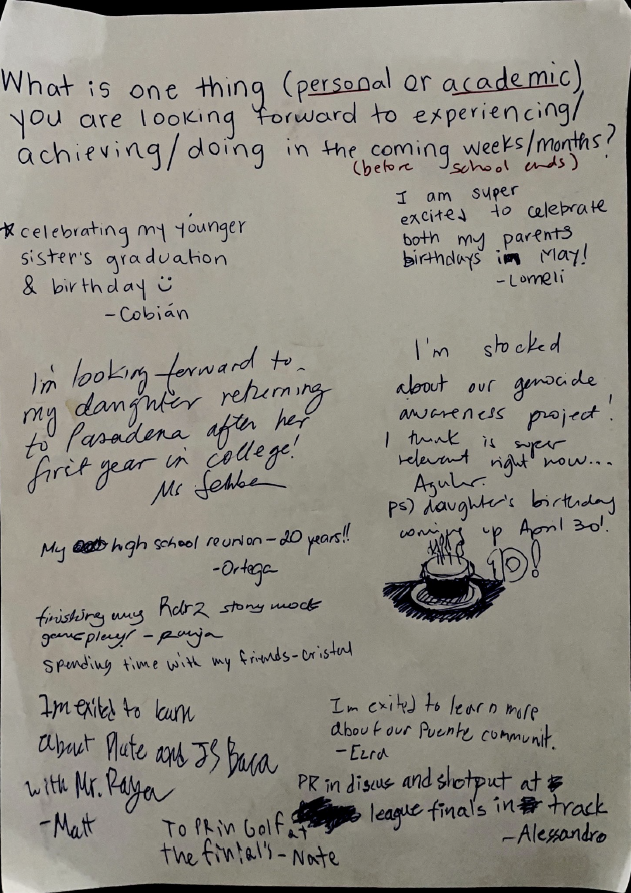 What is one thing (personal or academic)
you are looking forward to experiencing/
achieving/doing in the coming weeks/months?
(before school ends)
*celebrating my younger
sister's graduation
& birthday
-Cobián
I am super
excited to celebrate
both my parents
birthdays in May!
-Lomeli
I'm looking forward to
my daughter returning
to Pasadena after her
first year in college!
Ms
I'm stocked
about our genocide
awareness project!
I think is super
relevant right now...
Aguilar.
PS) daughter's birthday
coming up April 30!
10!
My high school reunion-20 years!!
-Ortega
finishing my Rdr2 story mode
gameplay! -
spending time with my friends-cristal
Im exited to learn
about Plute and JS Baca
with Mr. Raya
-Matt
Im exited to learn more
about our Puente communit.
-Ezra
PR in discus and shotput at
league finals in track
-Alessandro
To PR in Golf at
the finial's-Nate